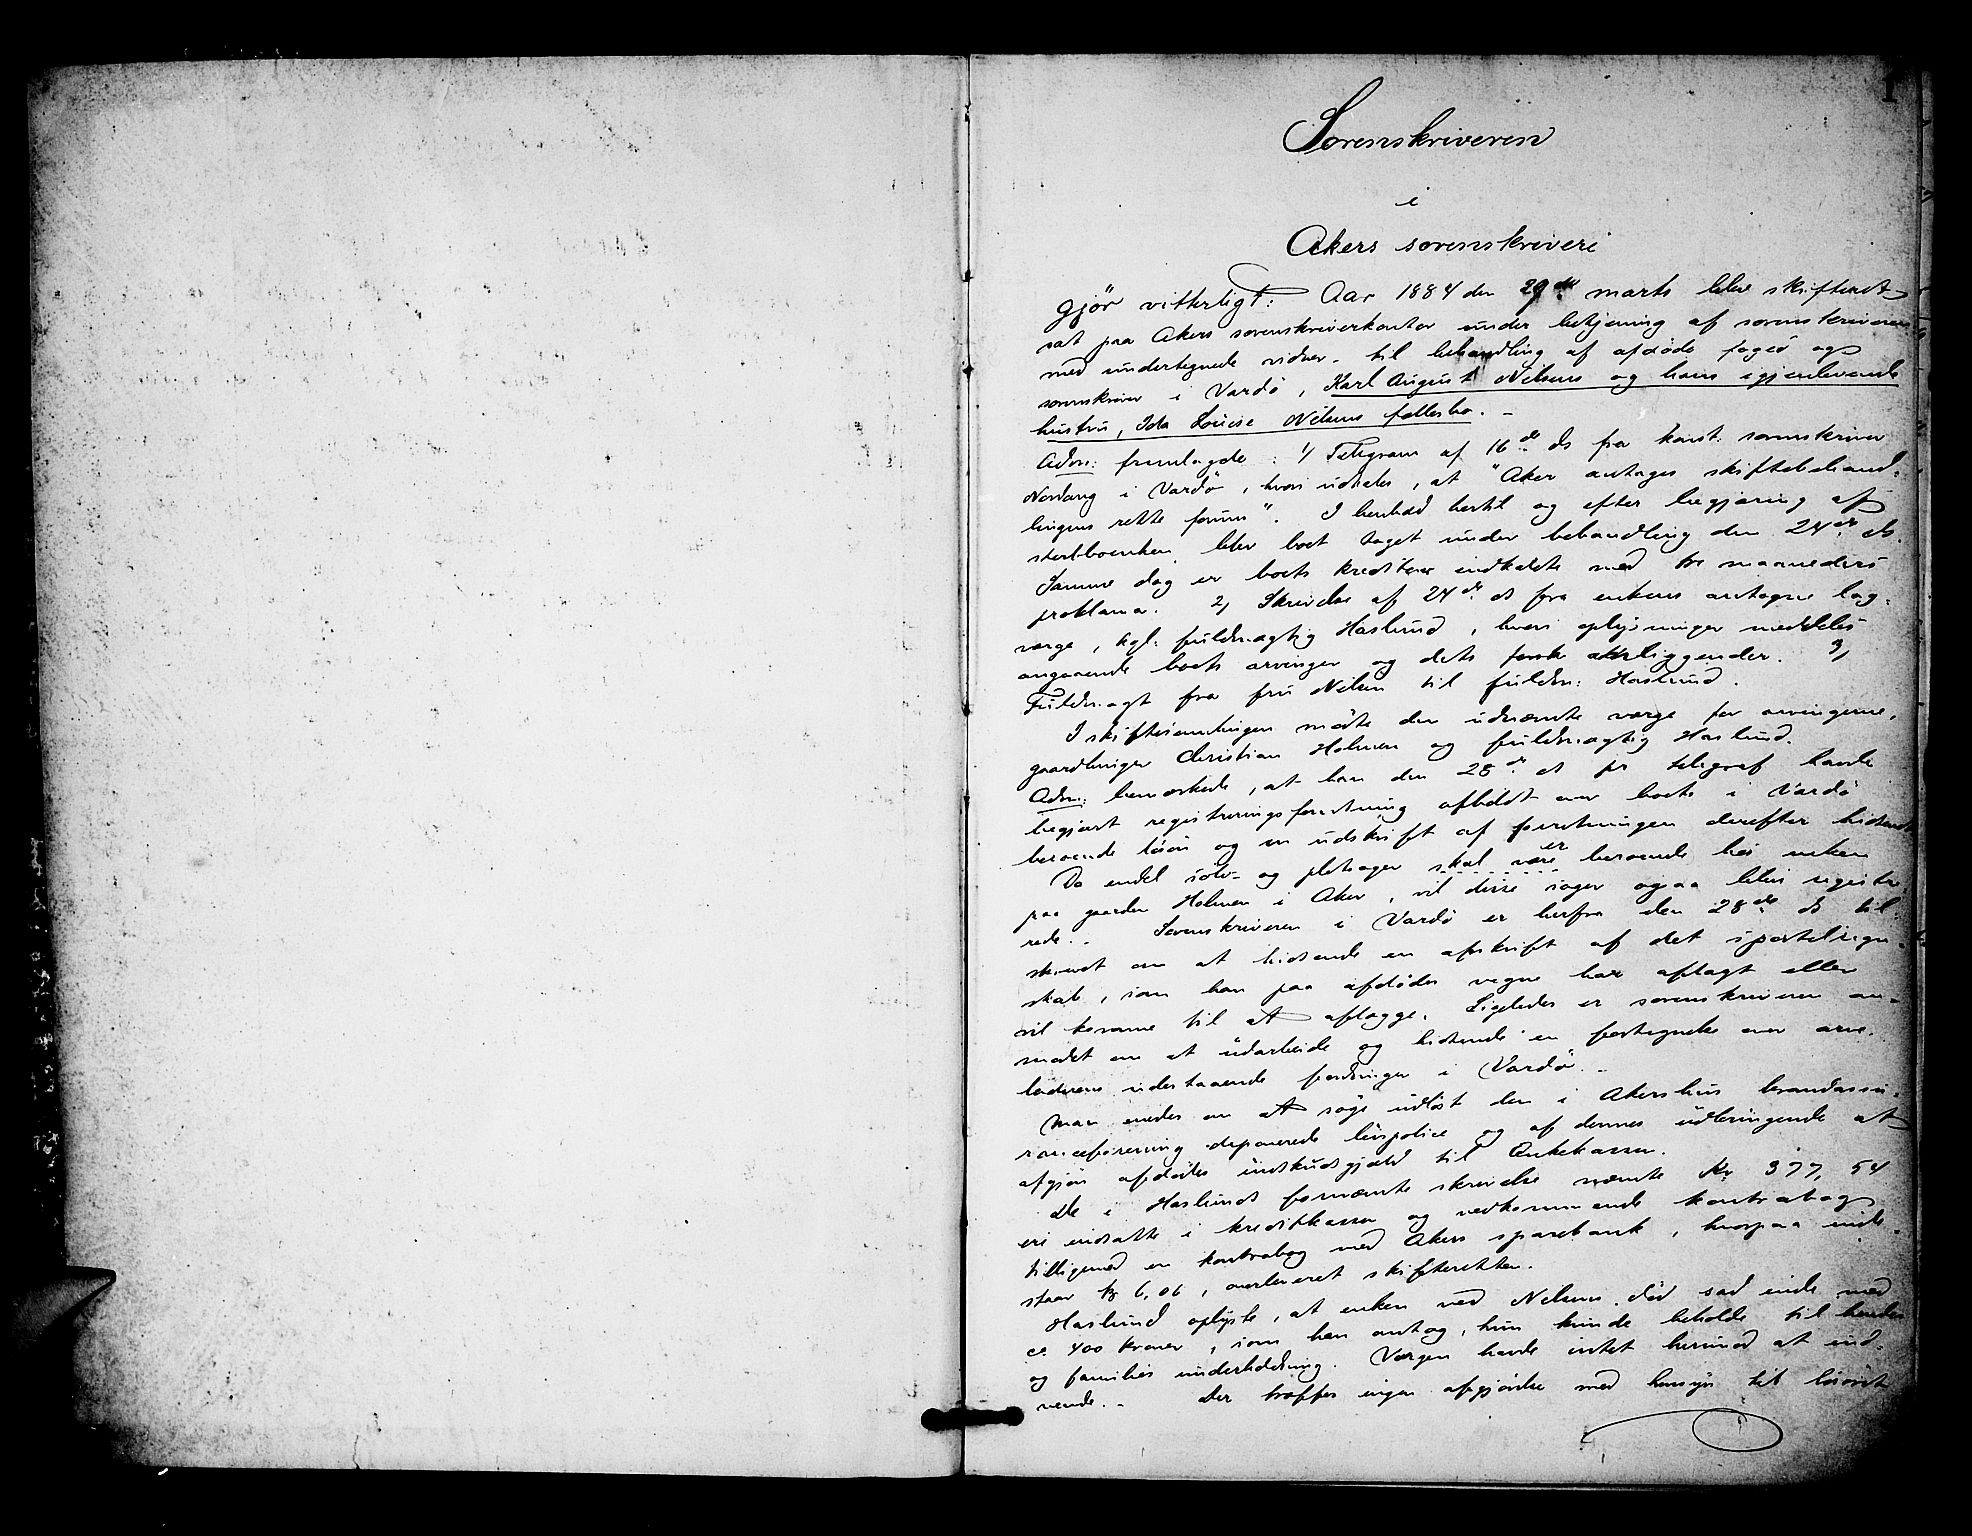 1
Sorenskriveren
i
Akers sorenskriveri
gjør vitterligt: Aar 1884 den 29de marts blev skifteret
sat paa Akers sorenskriverkontor under betjening af sorenskriveren
med undertegnede vidner til behandling af afdøde foged og
sorenskriver i Vardø, Karl August Nilsens og hans igjenlevende
hustru, Ida Louise Nilsens fællesbo. -
Adm: fremlagde: 1/ Telegram af 16de ds fra const. sorenskriver
Nordang i Vardø, hvori udtales, at "Aker antages skiftebehand-
lingens rette forum". I henhold hertil og efter begjæring af
sterboenken blev boet taget under behandling den 24de ds.
Samme dag er boets kreditorer indkaldte med tre maaneders
proklama. 2, Skrivelse af 24de ds fra enkens antagne lag-
værge, kgl. fuldmægtig Haslund, hvori oplysninger meddeles
angaaende boets arvinger og dets anliggender. 3,
Fuldmagt fra fru Nilsen til fuldm: Haslund.
I skiftesamlingen mødte den udnævnte værge for arvingerne,
gaardbruger Christian Holmen og fuldmægtig Haslund.
Adm: bemærkede, at han den 28de ds pr telegraf havde
begjært registreringsforretning afholdt over boets i Vardø
beroende løsøre og en udskrift af forretningen derefter hidsendt
Da endel sølv- og pletsager skal være er beroende hos enken
paa gaarden Holmen i Aker, vil disse sager ogsaa blive registre-
rede. - Sorenskriveren i Vardø er herfra den 28de ds til-
skrevet om at hidsende en afskrift af det sportelregn-
skab, som han paa afdødes vegne har aflagt eller
vil komme til at aflægge. Ligeledes er sorenskriveren an-
modet om at udarbeide og hidsende en fortegnelse over arve-
laderens udestaaende fordringer i Vardø. -
Man enedes om at søge udløst den i Akershus brandassu-
ranceforening deponerede livspolice og af dennes udbringende at
afgjøre afdødes indskudsgjæld til Enkekassen.
De i Haslunds fornævnte skrivelse nævnte Kr 377,54
ere indsatte i kreditkassen og vedkommende kontrabog
tilligemed en kontrabog med Akers sparebank, hvorpaa inde-
staar kr 6,06, overleveret skifteretten.
Haslund oplyste, at enken ved Nilsens død sad inde med
ca 400 kroner, som han antog, hun kunde beholde til hendes
og families underholdning. Værgen havde intet herimod at ind-
vende. - Der træffes ingen afgjørelse med hensyn til løsøret